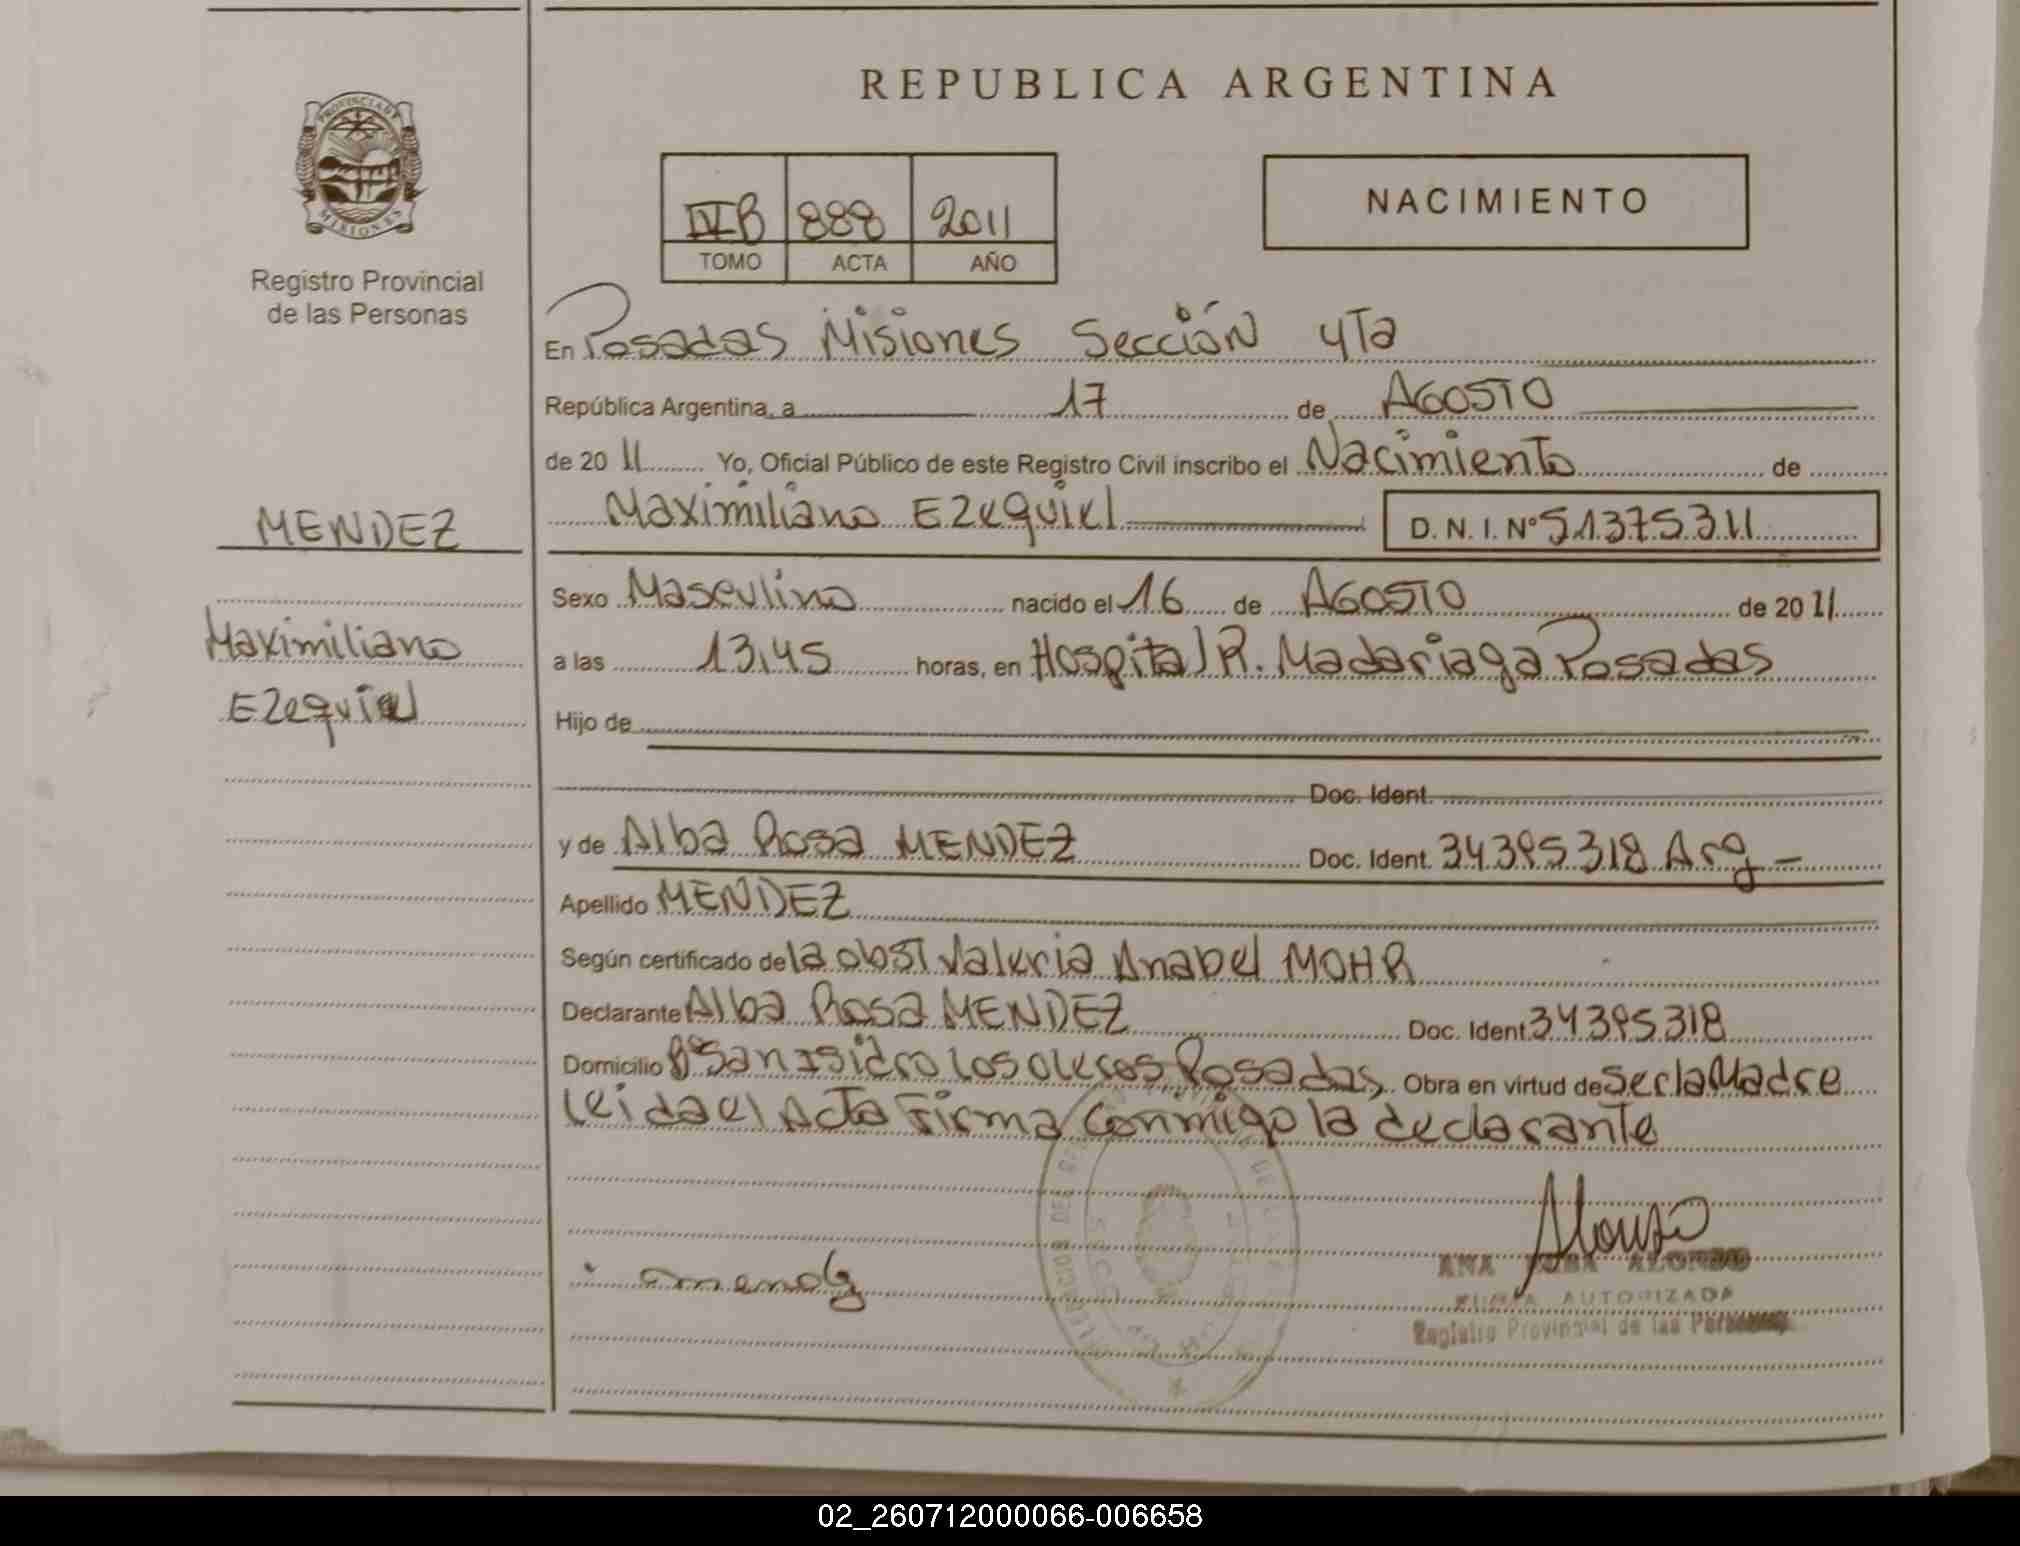 REPUBLICA ARGENTINA
PROVINCIA DE
MISIONES
Registro Provincial
de las Personas
IVB 888 2011
TOMO ACTA AÑO
NACIMIENTO
En Posadas Misiones Sección 4Ta
República Argentina, a 17 de AGOSTO
de 20 11 Yo, Oficial Público de este Registro Civil inscribo el Nacimiento de
Maximiliano Ezequiel D. N. I. Nº 51375311
MENDEZ
Maximiliano
Ezequiel
Sexo Masculino nacido el 16 de AGOSTO de 20 11
a las 13,45 horas, en Hospital R. Madariaga Posadas
Hijo de
Doc. Ident.
y de Alba Rosa MENDEZ Doc. Ident. 34395318 Arg -
Apellido MENDEZ
Según certificado de la obst Valeria Anabel MOHR
Declarante Alba Rosa MENDEZ Doc. Ident 34395318
Domicilio Bº San Isidro Los Oleros Posadas Obra en virtud de Ser la Madre
Leida el Acta Firma Conmigo la declarante
Alonso
ANA ALONSO
FIRMA AUTORIZADA
Registro Provincial de las Personas
02_260712000066-006658